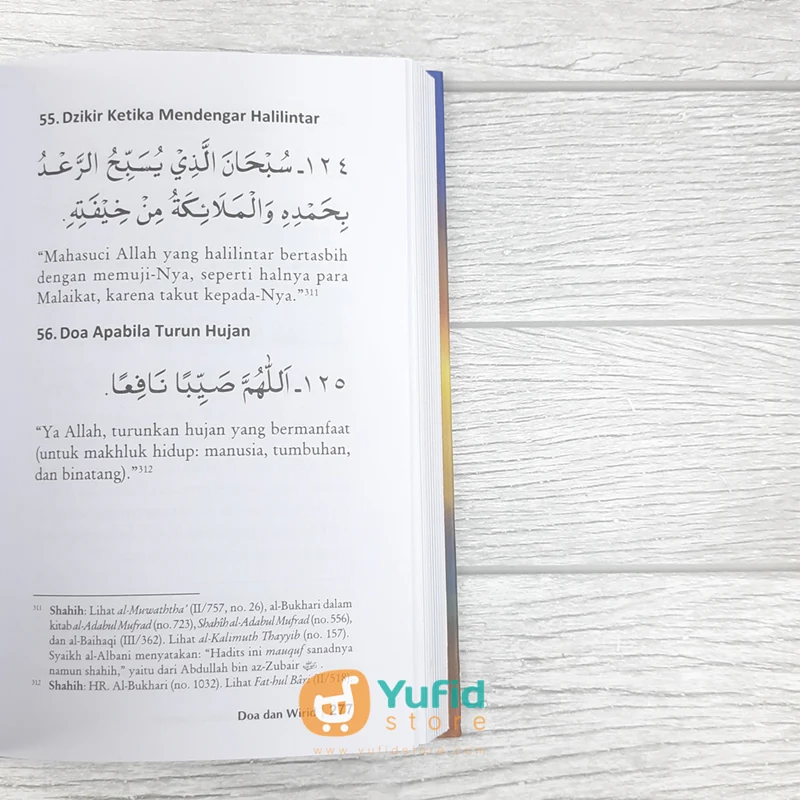 55. Dzikir Ketika Mendengar Halilintar
١٢٤ـ سُبْحَانَ الَّذِيْ يُسَبِّحُ الرَّعْدُ
بِحَمْدِهِ وَالْمَلَائِكَةُ مِنْ خِيْفَتِهِ.
“Mahasuci Allah yang halilintar bertasbih
dengan memuji-Nya, seperti halnya para
Malaikat, karena takut kepada-Nya.”311
56. Doa Apabila Turun Hujan
١٢٥ـ اَللّٰهُمَّ صَيِّبًا نَافِعًا.
“Ya Allah, turunkan hujan yang bermanfaat
(untuk makhluk hidup: manusia, tumbuhan,
dan binatang).”312
311 Shahih: Lihat al-Muwaththa’ (II/757, no. 26), al-Bukhari dalam
kitab al-Adabul Mufrad (no. 723), Shahîh al-Adabul Mufrad (no. 556),
dan al-Baihaqi (III/362). Lihat al-Kalimuth Thayyib (no. 157).
Syaikh al-Albani menyatakan: “Hadits ini mauquf sanadnya
namun shahih,” yaitu dari Abdullah bin az-Zubair .
312 Shahih: HR. Al-Bukhari (no. 1032). Lihat Fat-hul Bâri (II/518).
Doa dan Wirid 277
Yufid
store
www.yufidstore.com